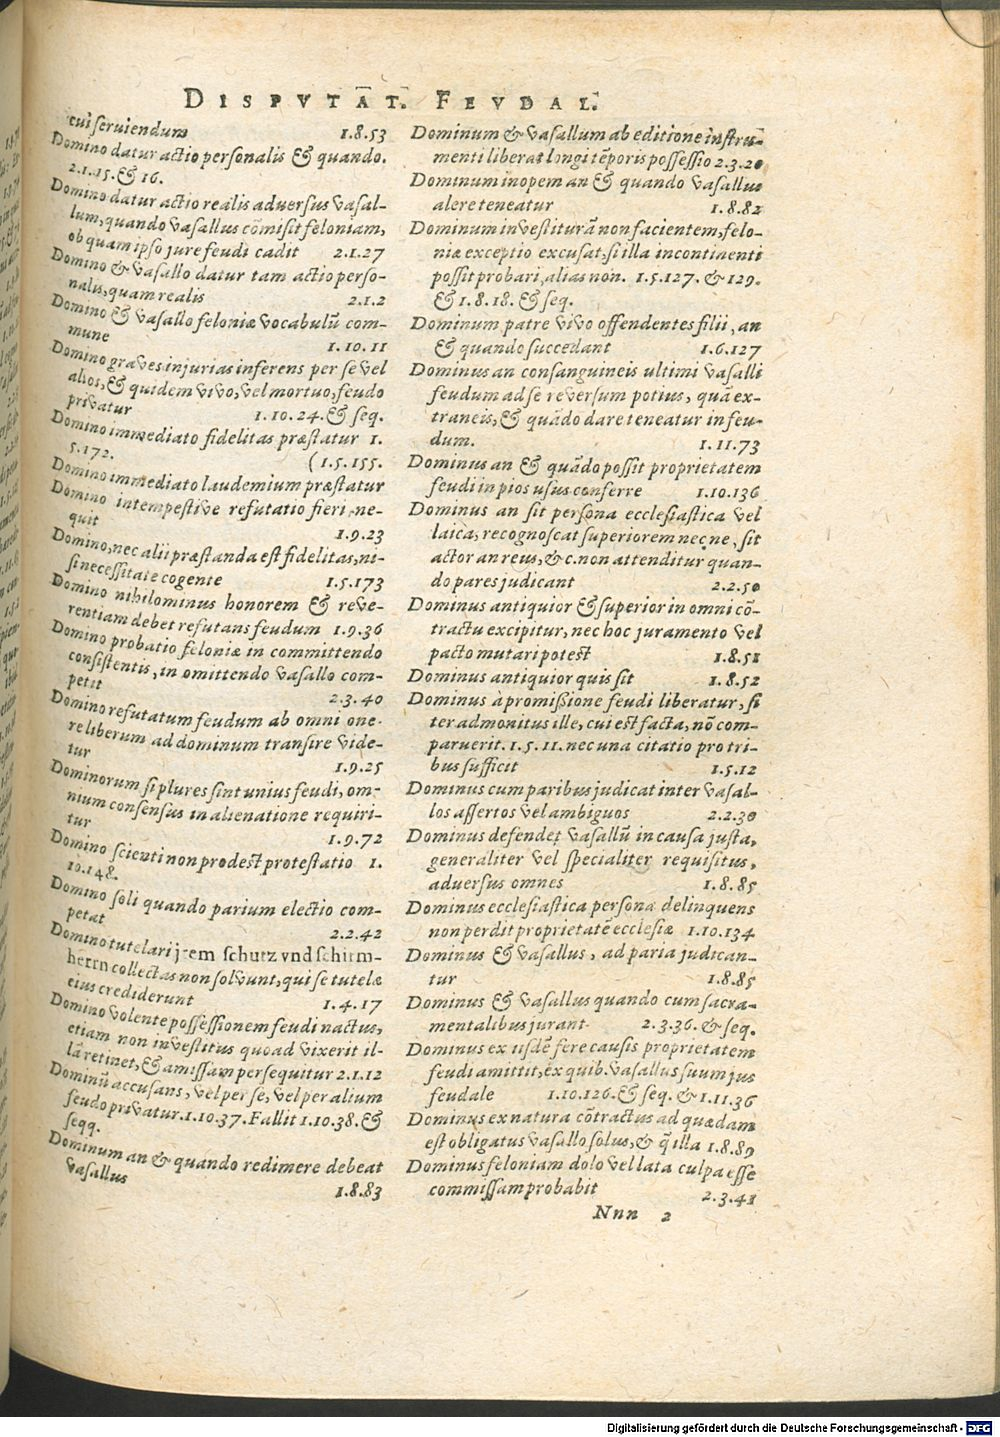 DISPVTAT. FEVDAL.
cui seruiendum 1.8.53
Domino datur actio personalis & quando.
2.1.15. & 16.
Domino datur actio realis adversus vasal-
lum, quando vasallus cõmisit feloniam,
ob quam ipso jure feudi cadit 2.1.27
Domino & vasallo datur tam actio perso-
nalis, quam realis 2.1.2
Domino & vasallo feloniæ vocabulũ com-
mune 1.10.11
Domino graves injurias inferens per se vel
alios, & quidem vivo, vel mortuo, feudo
privatur 1.10.24. & seq.
Domino immediato fidelitas præstatur 1.
5.172. (1.5.155.
Domino immediato laudemium præstatur
Domino intempestive refutatio fieri ne-
quit 1.9.23
Domino, nec alii præstanda est fidelitas, ni-
si necessitate cogente 1.5.173
Domino nihilominus honorem & reve-
rentiam debet refutans feudum 1.9.36
Domino probatio feloniæ in committendo
consistentis, in omittendo vasallo com-
petit 2.3.40
Domino refutatum feudum ab omni one-
re liberum ad dominum transire vide-
tur 1.9.25
Dominorum si plures sint unius feudi, om-
nium consensus in alienatione requiri-
tur 1.9.72
Domino scienti non prodest protestatio 1.
10.148.
Domino soli quando parium electio com-
petat 2.2.42
Domino tutelari jrem schutz vnd schirm-
herrn collectas non solvunt, qui se tutelæ
eius crediderunt 1.4.17
Domino volente possessionem feudi nactus,
etiam non investitus quoad vixerit il-
lã retinet, & amissam persequitur 2.1.12
Dominũ accusans, vel per se, vel per alium
feudo privatur. 1.10.37. Fallit 1.10.38. &
seqq.
Dominum an & quando redimere debeat
vasallus 1.8.83
Dominum & vasallum ab editione instru-
menti liberat longi tẽporis possessio 2.3.20
Dominum inopem an & quando vasallus
alere teneatur 1.8.82
Dominum investiturã non facientem, felo-
niæ exceptio excusat, si illa incontinenti
possit probari, alias non. 1.5.127. & 129.
& 1.8.18. & seq.
Dominum patre vivo offendentes filii, an
& quando succedant 1.6.127
Dominus an consanguineis ultimi vasalli
feudum ad se reversum potius, quã ex-
traneis, & quãdo dare teneatur in feu-
dum. 1.11.73
Dominus an & quãdo possit proprietatem
feudi in pios usus conferre 1.10.136
Dominus an sit persona ecclesiastica vel
laica, recognoscat superiorem necne, sit
actor an reus, &c. non attenditur quan-
do pares judicant 2.2.50
Dominus antiquior & superior in omni cõ-
tractu excipitur, nec hoc juramento vel
pacto mutari potest 1.8.51
Dominus antiquior quis sit 1.8.52
Dominus à promissione feudi liberatur, si
ter admonitus ille, cui est facta, nõ com-
paruerit. 1.5.11. nec una citatio pro tri-
bus sufficit 1.5.12
Dominus cum paribus judicat inter vasal-
los assertos vel ambiguos 2.2.30
Dominus defendet vasallũ in causa justa,
generaliter vel specialiter requisitus,
adversus omnes 1.8.85
Dominus ecclesiastica persona delinquens
non perdit proprietatẽ ecclesiæ 1.10.134
Dominus & vasallus, ad paria judican-
tur 1.8.85
Dominus & vasallus quando cum sacra-
mentalibus jurant 2.3.36. & seq.
Dominus ex iisdẽ fere causis proprietatem
feudi amittit, ex quib. vasallus suum jus
feudale 1.10.126. & seq. & 1.11.36
Dominus ex natura cõtractus ad quædam
est obligatus vasallo solus, & q̃ illa 1.8.89
Dominus feloniam dolo vel lata culpa esse
commissam probabit 2.3.41
Nnn 2
Digitalisierung gefördert durch die Deutsche Forschungsgemeinschaft - DFG